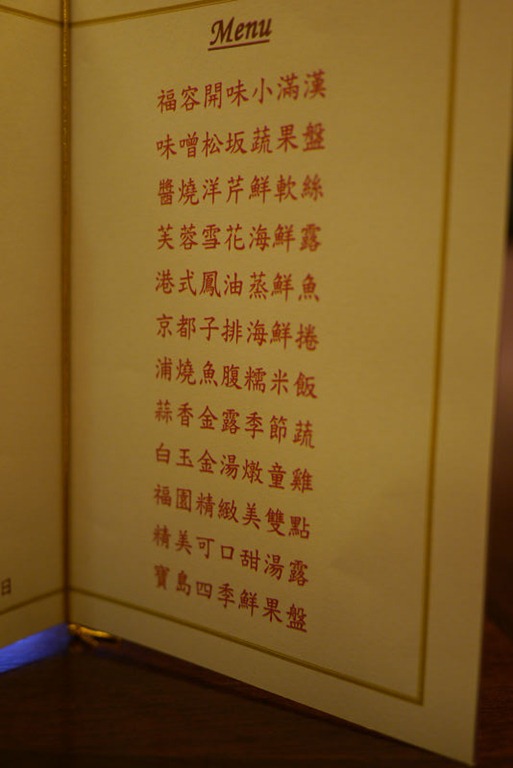 Menu
福容開味小滿漢
味噌松坂蔬果盤
醬燒洋芹鮮軟絲
芙蓉雪花海鮮露
港式鳳油蒸鮮魚
京都子排海鮮捲
浦燒魚腹糯米飯
蒜香金露季節蔬
白玉金湯燉童雞
福圓精緻美雙點
精美可口甜湯露
寶島四季鮮果盤
日